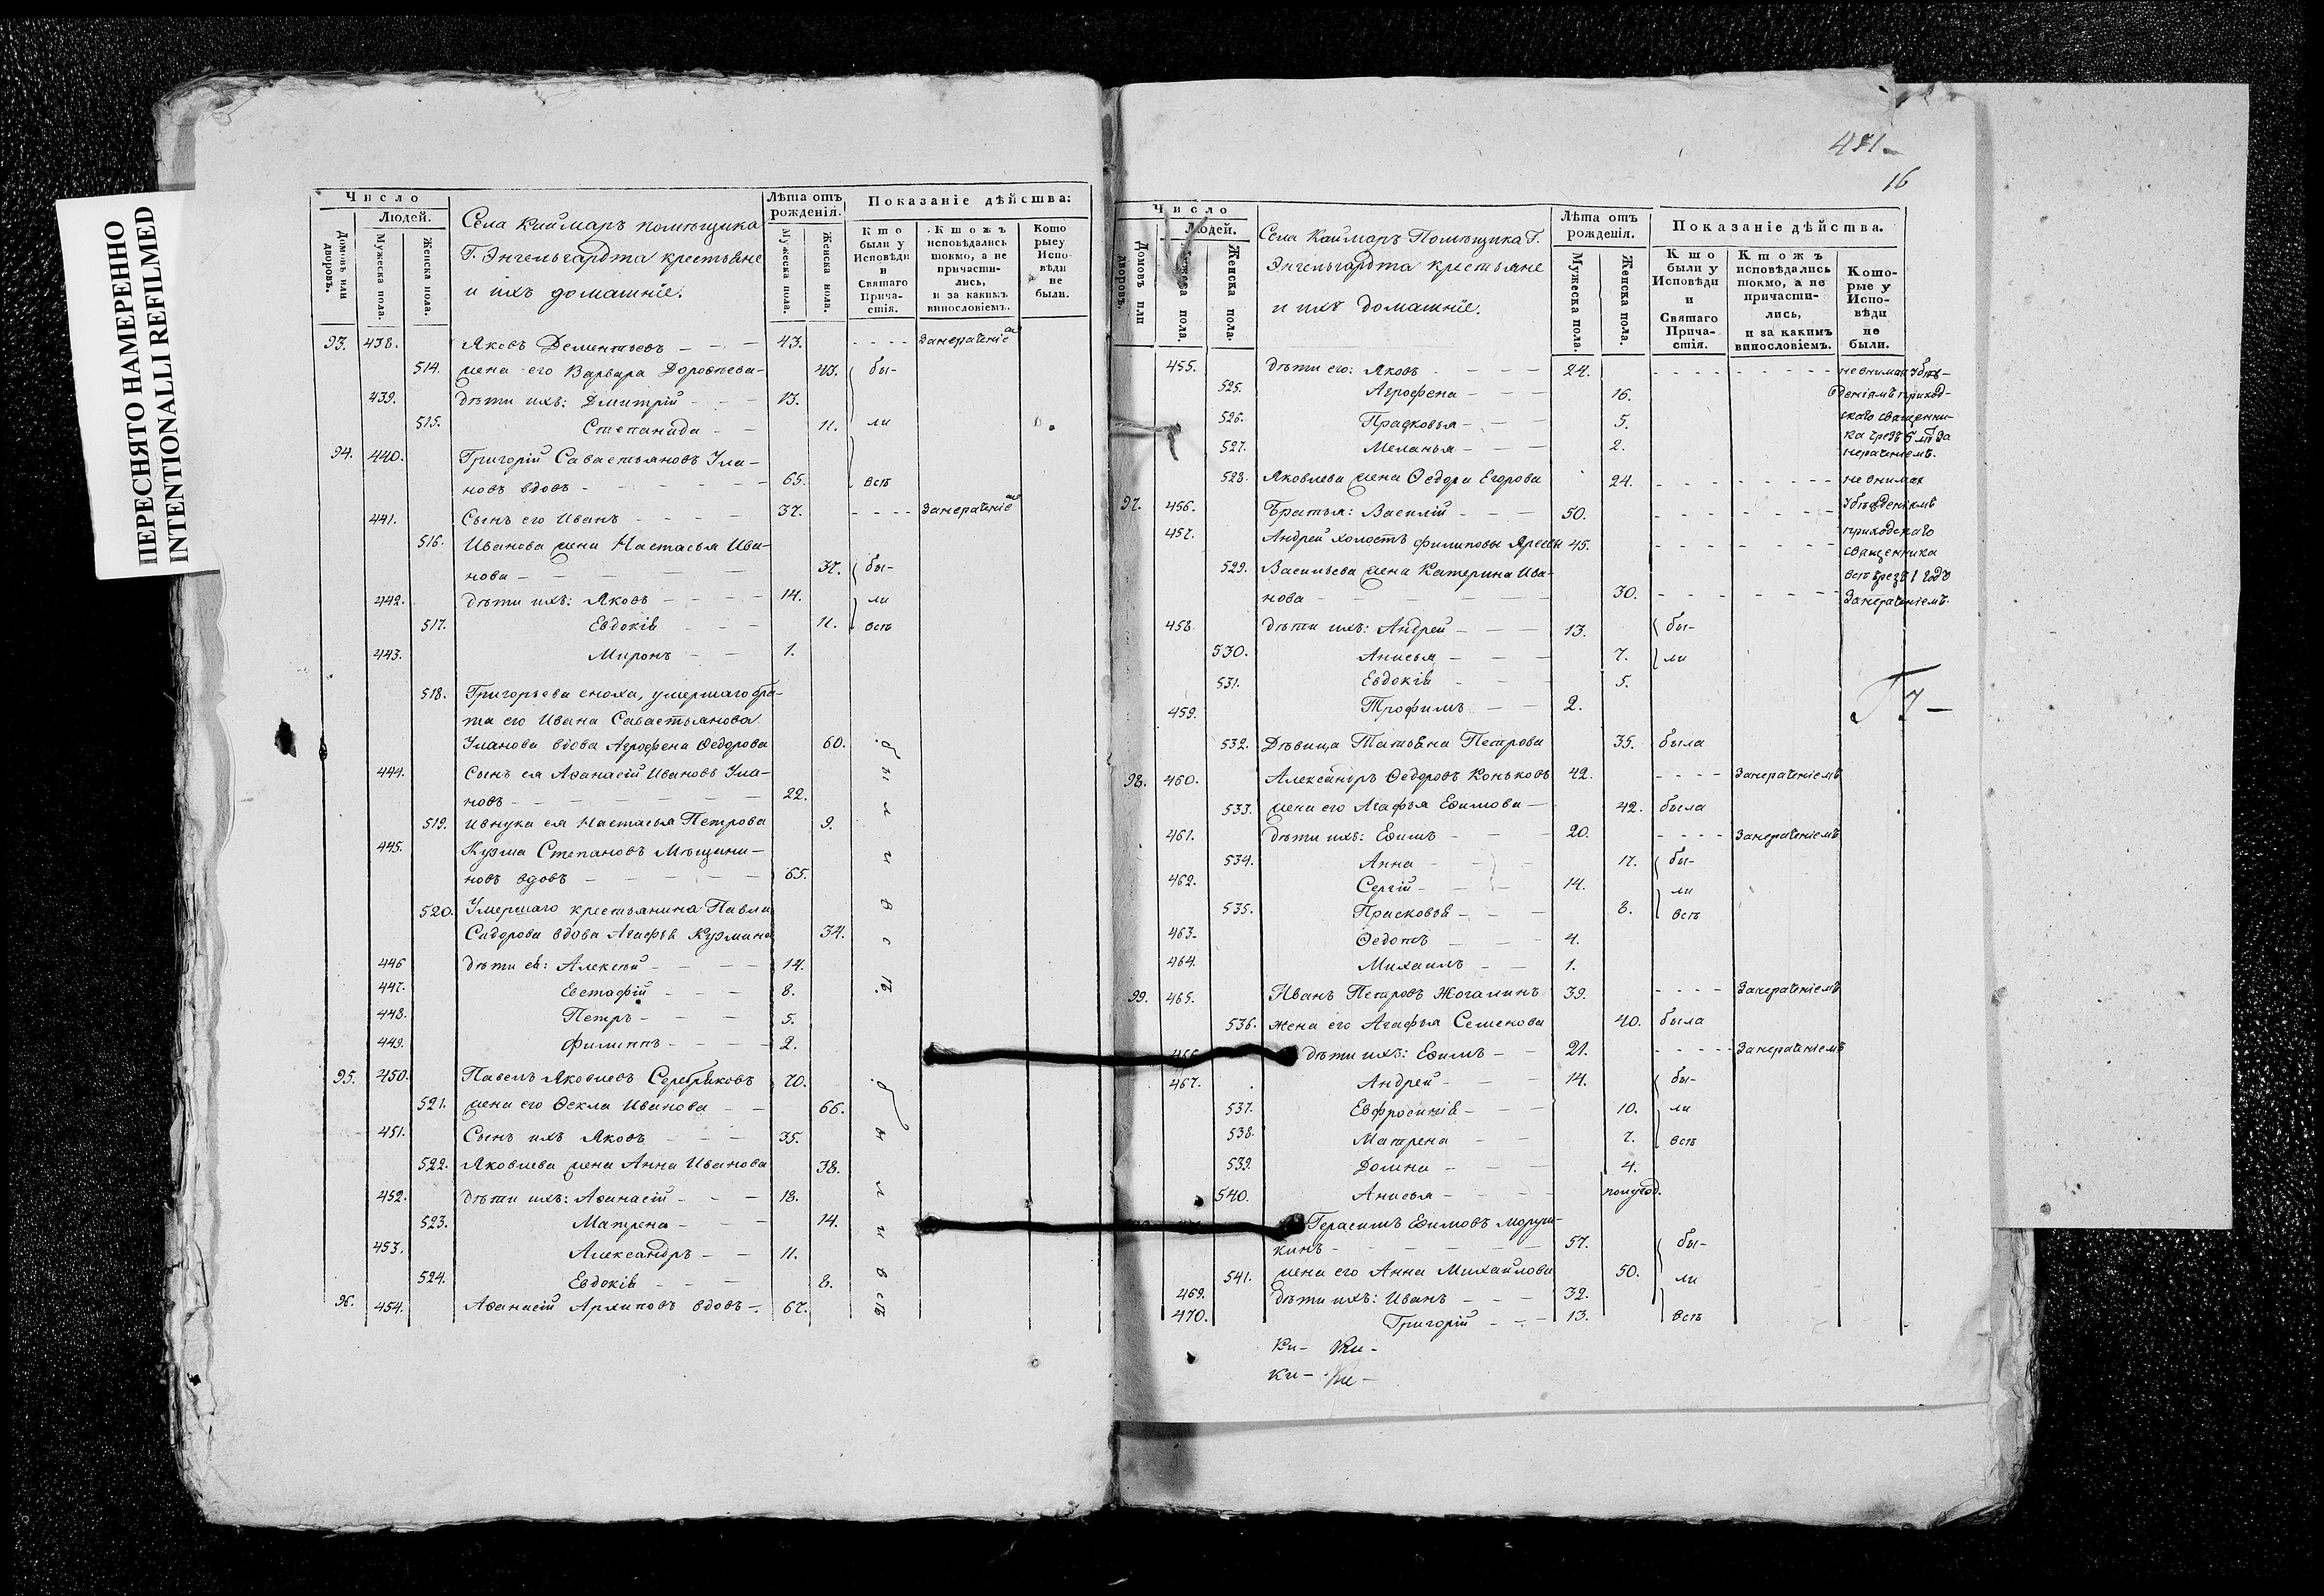 ПЕРЕСНЯТО НАМЕРЕННО
INTENTIONALLI REFILMED
Число
Людей.
Домовъ или дворовъ.
Мужеска пола.
Женска пола.
Села Каймаръ помѣщика
Г. Энгельгардта крестьяне
и ихъ домашніе.
Лѣта отъ рожденія.
Мужеска пола.
Женска пола.
Показаніе дѣйства:
Кто были у Исповѣди и Святаго Причастія.
Ктожъ исповѣдались токмо, а не причастились, и за какимъ винословіемъ.
Которыеу Исповѣди не были.
93. 438. Яковъ Дементьевъ — — — 43. - - - -
514. жена его Варвара Дороѳеева — 43. бы-
439. дѣти ихъ: Дмитрій — — 13.
515. Степанида — — 11. ли
94. 440. Григорій Савастьяновъ Ула-
новъ вдовъ — — — 65. всѣ
441. Сынъ его Иванъ — — — 37. - - - -
516. Иванова жена Настасья Ива-
нова — — — 37. бы-
442. дѣти ихъ: Яковъ — — — 14. ли
517. Евдокія — — 11. всѣ
443. Миронъ — — 1.
518. Григорьева сноха, умершаго бра-
та его Ивана Савастьянова
Уланова вдова Агрофена Ѳедорова 60.
444. Сынъ ея Аѳанасій Ивановъ Ула-
новъ — — — 22.
519. Ивнука ея Настасья Петрова 9.
445. Кузма Степановъ Мѣщини-
новъ вдовъ — — — 65.
520. Умершаго крестьянина Павла
Сидорова вдова Агафья Кузмина 34.
446 дѣти ея: Алексѣй — — — 14.
447. Евстафій — — — 8.
448. Петръ — — — 5.
449. Филиппъ — — — 2.
были всѣ
95. 450. Павелъ Яковлевъ Серебряковъ 70.
521. жена его Ѳекла Иванова — — 66.
451. Сынъ ихъ Яковъ — — — 35.
522. Яковлева жена Анна Иванова 38.
452. дѣти ихъ: Аѳанасій — — — 18.
523. Матрена — — — 14.
453. Александръ — — 11.
524. Евдокія — — — 8.
96. 454. Аѳанасій Архиповъ вдовъ — 67.
были всѣ
16
Число
Людей.
Домовъ или дворовъ.
Мужеска пола.
Женска пола.
Села Каймаръ Помѣщика Г.
Энгельгардта крестьяне
и ихъ домашніе.
Лѣта отъ рожденія.
Мужеска пола.
Женска пола.
Показаніе дѣйства.
Кто были у Исповѣди и Святаго Причастія.
Ктожъ исповѣдались токмо, а не причастились, и за какимъ винословіемъ.
Которые у Исповѣди не были.
455. дѣти его: Яковъ — — — 24. - - - - - - - - -
525. Агрофена — — — 16.
526. Прасковья — — — 5.
527. Меланья — — — 2.
528. Яковлева жена Ѳедора Егорова 24. - - - - - - - -
97. 456. Братья: Василій — — — 50. - - - - - -
457. Андрей холостъ Филиповы 45. - - - - - -
529. Васильева жена Катерина Ива-
нова — — — 30. - - - - - -
458 дѣти ихъ: Андрей — — — 13. бы-
530. Анисья — — — 7. ли
531. Евдокія — — — 5.
459. Трофимъ — — 2.
532. Дѣвица Татьяна Петрова 35. была
98. 460. Александръ Ѳедоровъ Коньковъ 42. - - - - Занераченіемъ
533. жена его Агафья Еѳимова — 42. была
461. дѣти ихъ: Еѳимъ — — — 20. - - - - Занераченіемъ
534. Анна — — — 17. бы-
462. Сергій — — — 14. ли
535. Прасковья — — — 8. всѣ
463. Ѳедотъ — — — 4.
464. Михаилъ — — 1.
99. 465. Иванъ Петровъ Жогалинъ 39. - - - - Занераченіемъ
536. жена его Агафья Семенова 40. была
дѣти ихъ: Еѳимъ — — 21. - - - - Занераченіемъ
467. Андрей — — — 14. бы-
537. Евфросинія — — — 10. ли
538. Матрена — — 7. всѣ
539. Домна — — — 4.
540. Анисья — — — полугод.
Герасимъ Еѳимовъ
кинъ — — — 57. бы-
541. жена его Анна Михайлова 50. ли
469. дѣти ихъ: Иванъ — — — 32.
470. Григорій — — — 13. всѣ
не внимая убѣж-
деніямъ приход-
скаго священни-
ка чрезъ 5 лѣтъ за
нераченіемъ.
не внимая
убѣжденіямъ
приходскаго
священника
всѣ чрезъ 1 годъ
Занераченіемъ.